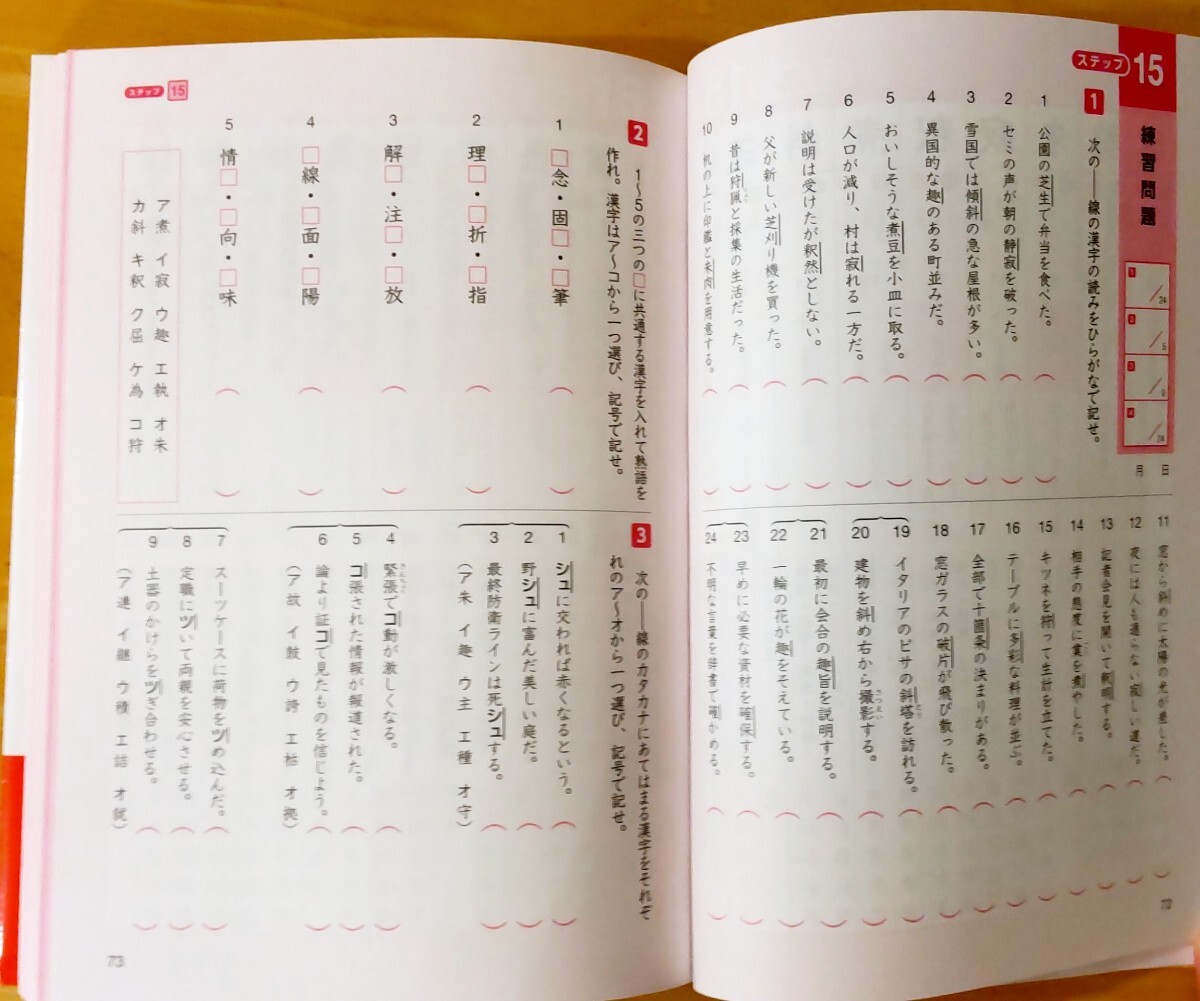 ステップ 15
練習問題
1 /24
2 /5
3 /9
4 /24
月 日
1 次の――線の漢字の読みをひらがなで記せ。
1 公園の芝生で弁当を食べた。
2 セミの声が朝の静寂を破った。
3 雪国では傾斜の急な屋根が多い。
4 異国的な趣のある町並みだ。
5 おいしそうな煮豆を小皿に取る。
6 人口が減り、村は寂れる一方だ。
7 説明は受けたが釈然としない。
8 父が新しい芝刈り機を買った。
9 昔は狩猟と採集の生活だった。
10 机の上に印鑑と朱肉を用意する。
11 窓から斜めに太陽の光が差した。
12 夜には人も通らない寂しい道だ。
13 記者会見を開いて釈明する。
14 相手の態度に業を煮やした。
15 キツネを狩って生計を立てた。
16 テーブルに多彩な料理が並ぶ。
17 全部で十箇条の決まりがある。
18 窓ガラスの破片が飛び散った。
19 イタリアのピサの斜塔を訪れる。
20 建物を斜め右から撮影する。
21 最初に会合の趣旨を説明する。
22 一輪の花が趣をそえている。
23 早めに必要な資材を確保する。
24 不明な言葉を辞書で確かめる。
72
ステップ 15
2 1～5の三つの□に共通する漢字を入れて熟語を
作れ。漢字はア～コから一つ選び、記号で記せ。
1 □念・固□・□筆
2 理□・□折・□指
3 解□・注□・□放
4 □線・□面・□陽
5 情□・□向・□味
ア煮 イ寂 ウ趣 エ執 オ朱
カ斜 キ釈 ク屈 ケ為 コ狩
3 次の――線のカタカナにあてはまる漢字をそれぞ
れのア～オから一つ選び、記号で記せ。
1 シュに交われば赤くなるという。
2 野シュに富んだ美しい庭だ。
3 最終防衛ラインは死シュする。
(ア朱 イ趣 ウ主 エ種 オ守)
4 緊張でコ動が激しくなる。
5 コ張された情報が報道された。
6 論より証コで見たものを信じよう。
(ア故 イ鼓 ウ誇 エ枯 オ拠)
7 スーツケースに荷物をツめ込んだ。
8 定職にツいて両親を安心させる。
9 土器のかけらをツぎ合わせる。
(ア連 イ継 ウ積 エ詰 オ就)
73